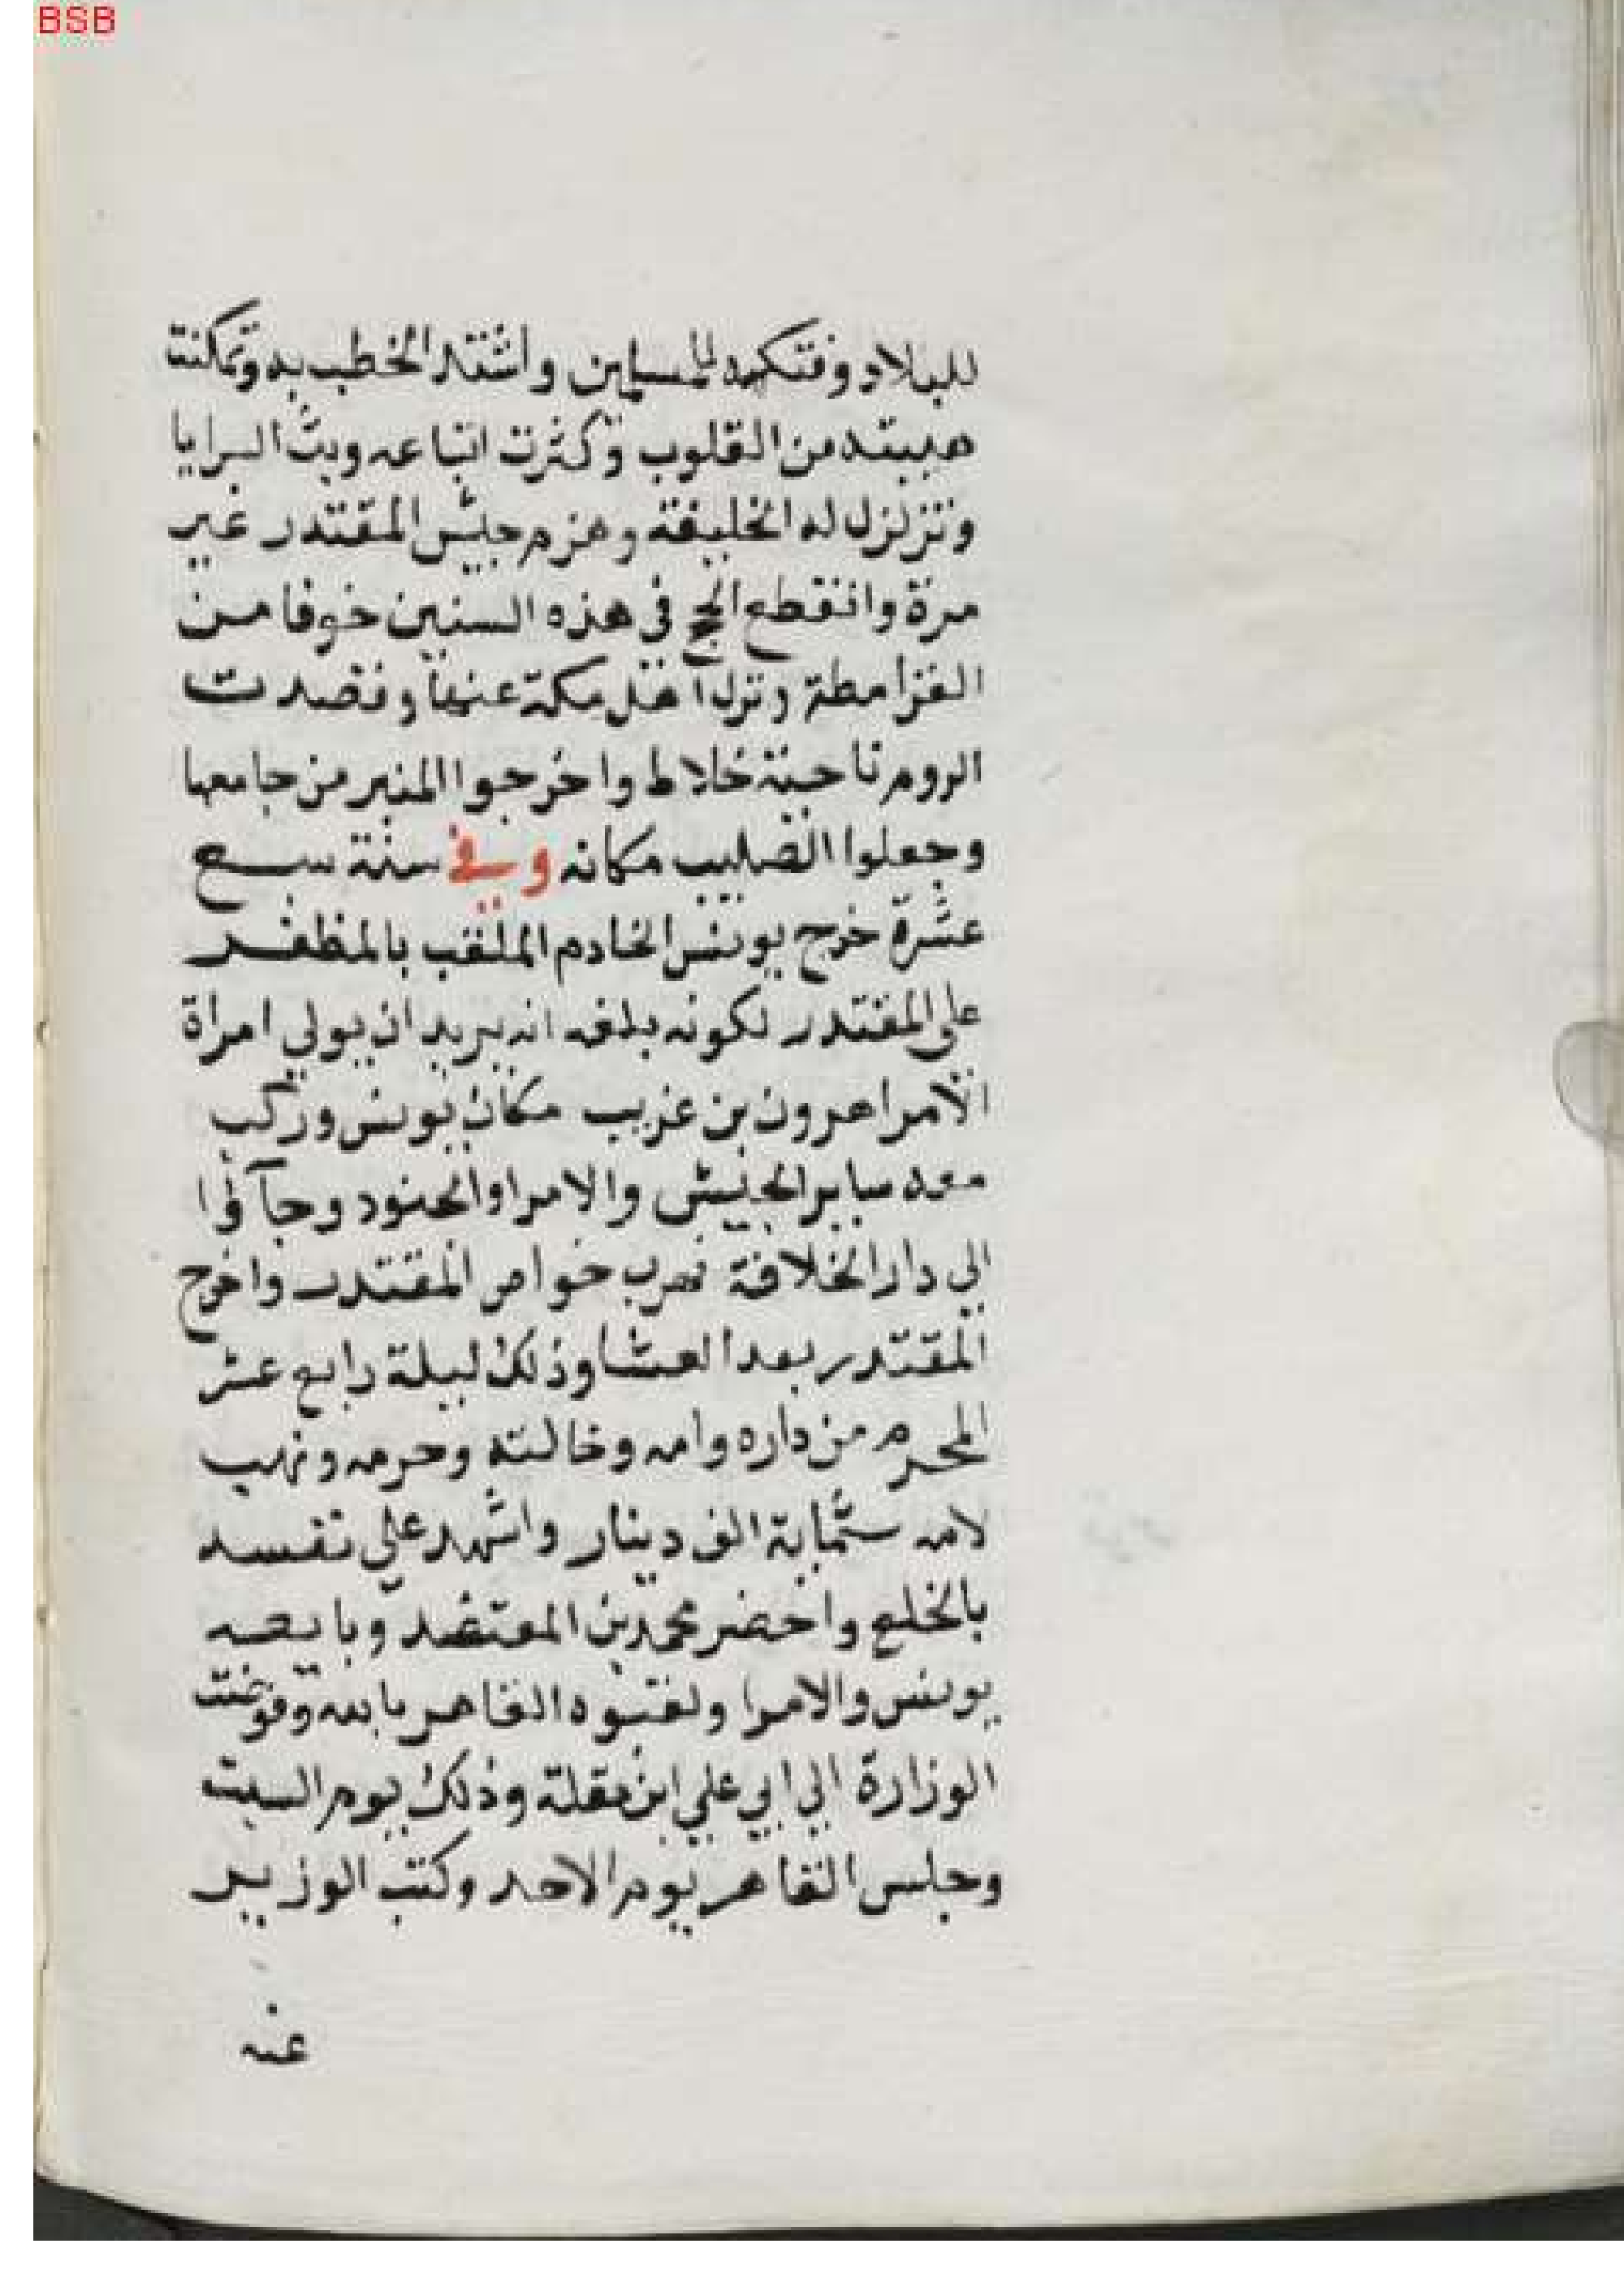 BSB
للبلاد وفتكه للمسلمين واشتد الخطب به وتمكنت
هيبته من القلوب وكثرت اتباعه وبث السرايا
وتزلزل له الخليفة وهزم جيش المقتدر غير
مرة وانقطع الحج في هذه السنين خوفا من
القرامطة ونزل اهل مكة عنها وقصدت
الروم ناحية خلاط واخرجوا المنبر من جامعها
وجعلوا الصليب مكانه وفي سنة سبع
عشرة خرج يونس الخادم الملقب بالمظفر
على المقتدر لكونه بلغه انه يريد ان يولي امراة
الامرا هرون بن غريب مكان يونس وركب
معه سايرالجيش والامرا والجنود وجآوا
الي دار الخلافة فهرب خواص المقتدر واخرج
المقتدر بعد العشا وذلك ليلة رابع عشر
المحرم من داره وامه وخالته وحرمه ونهب
لامه ستماية الف دينار واشهد علي نفسه
بالخلع واحضر محمد بن المعتضد وبايعه
يونس والامرا ولقبوه القاهر بالله وفوضت
الوزارة الي ابي علي ابن مقلة وذلك يوم السبت
وجلس القاهر يوم الاحد وكتب الوزير
عنه